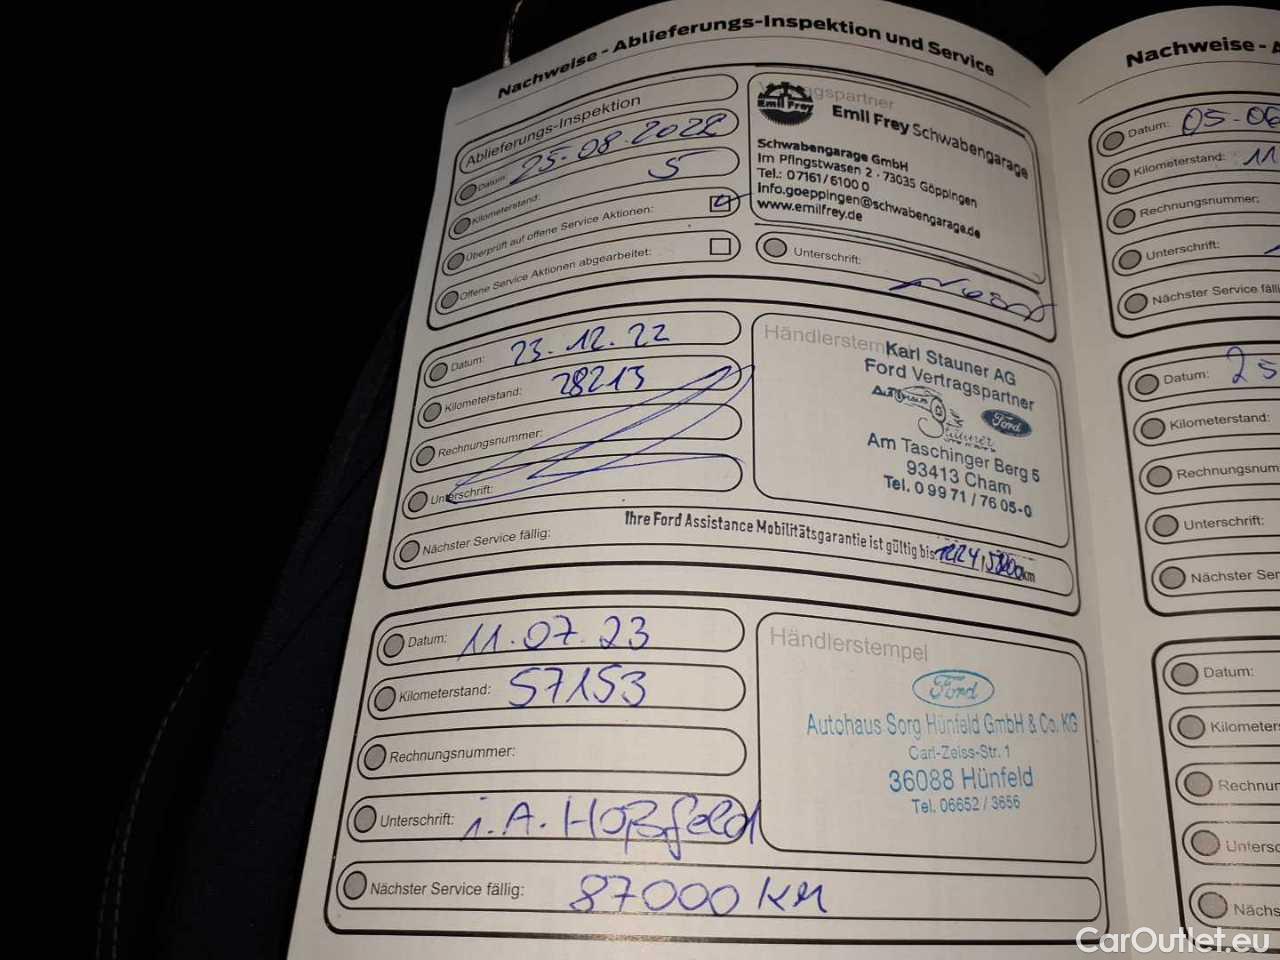 Nachweise - Ablieferungs-Inspektion und Service
Ablieferungs-Inspektion
Datum: 25-08-2022
Kilometerstand: 5
Überprüft auf offene Service Aktionen:
Offene Service Aktionen abgearbeitet:
Emil Frey
Emil Frey Schwabengarage
Schwabengarage GmbH
Im Pfingstwasen 2 · 73035 Göppingen
Tel.: 07161/6100 0
info.goeppingen@schwabengarage.de
www.emilfrey.de
Unterschrift:
Datum: 23.12.22
Kilometerstand: 28213
Rechnungsnummer:
Unterschrift:
Nächster Service fällig:
Karl Stauner AG
Ford Vertragspartner
Autohaus Stauner
Ford
Am Taschinger Berg 5
93413 Cham
Tel. 0 99 71 / 76 05-0
Ihre Ford Assistance Mobilitätsgarantie ist gültig bis: km
Datum: 11.07.23
Kilometerstand: 57153
Rechnungsnummer:
Unterschrift: i.A. Hoßfeld
Nächster Service fällig: 87000 KM
Händlerstempel
Ford
Autohaus Sorg Hünfeld GmbH & Co. KG
Carl-Zeiss-Str. 1
36088 Hünfeld
Tel. 06652 / 3656
Nachweise -
Datum: 05-06
Kilometerstand: 11
Rechnungsnummer:
Unterschrift:
Nächster Service fälli
Datum: 25
Kilometerstand:
Rechnungsnum
Unterschrift:
Nächster Ser
Datum:
Kilometers
Rechnun
Untersc
Nächs
CarOutlet.eu